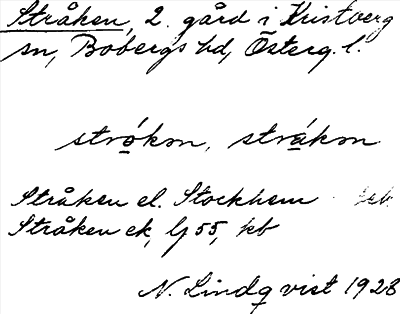 Stråken, 2. gård i Kristberg
sn, Bobergs hd, Österg. l.
strǫ́kən, strákən
Stråken el. Stockhem
Stråken ek, lj 55, kb
N. Lindqvist 1928